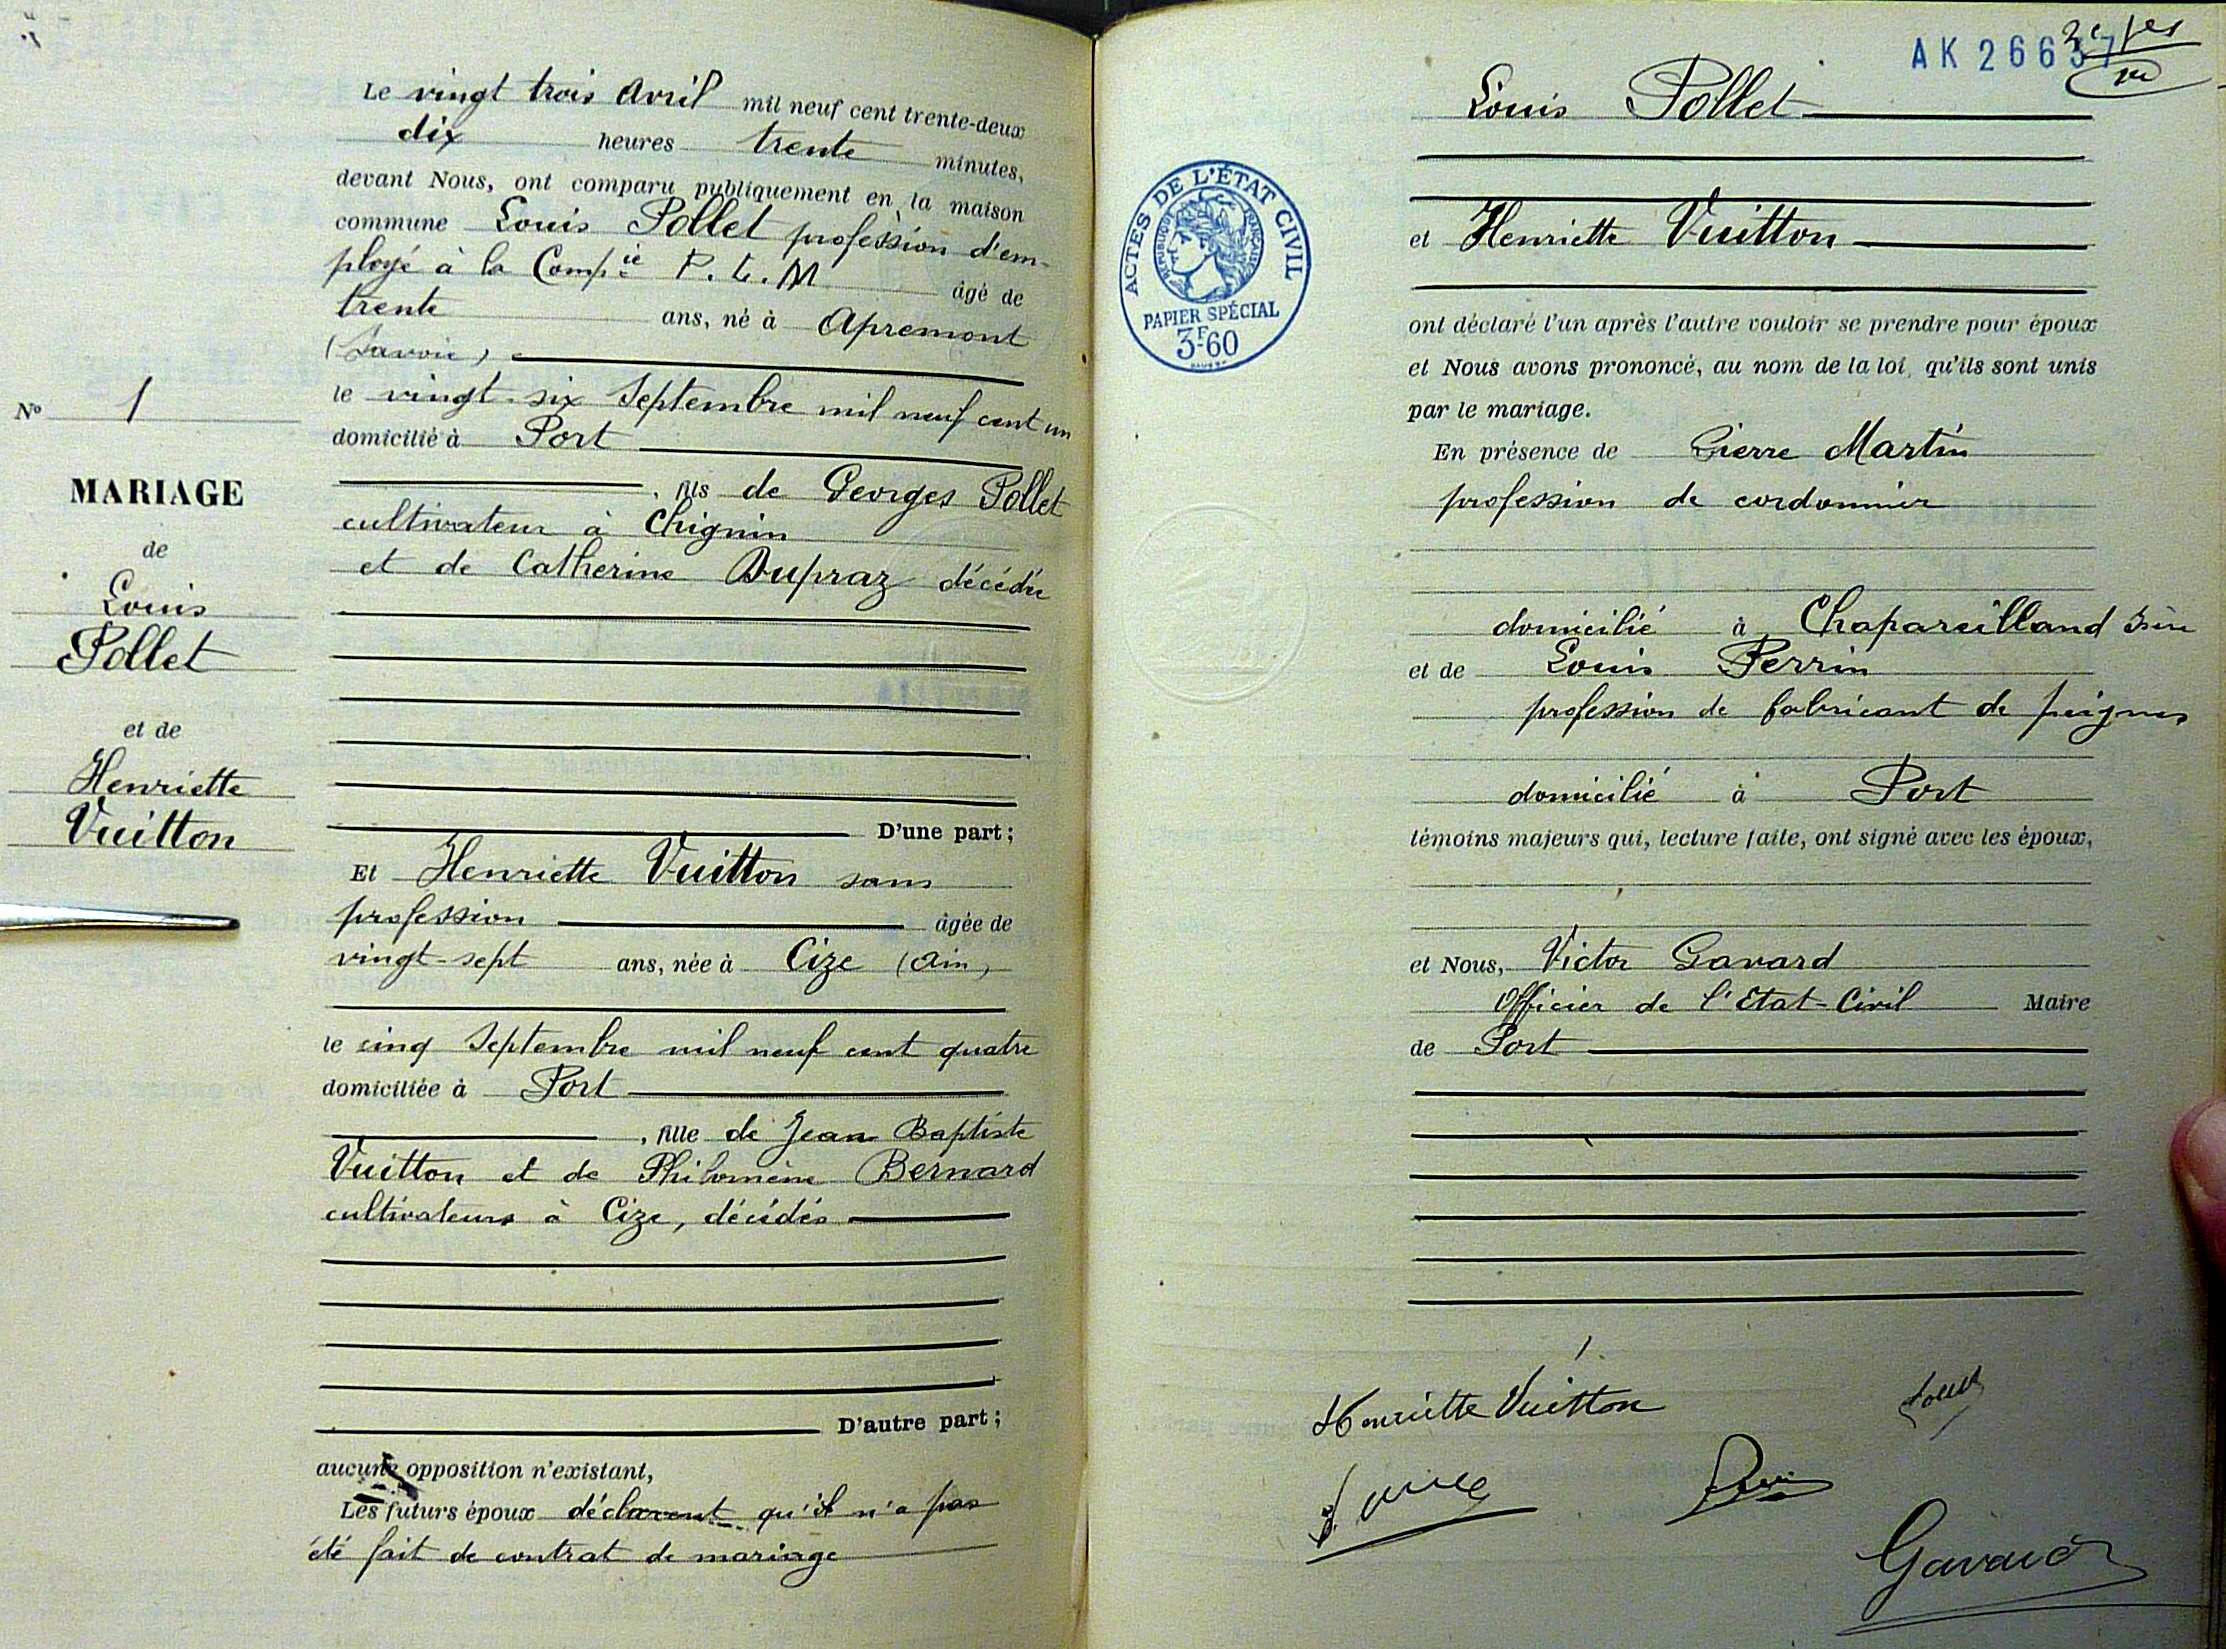 Le vingt trois Avril mil neuf cent trente-deux
dix heures trente minutes,
devant Nous, ont comparu publiquement en la maison
commune Louis Pollet profession d'em-
ployé à la Compie P. L. M âgé de
trente ans, né à Apremont
(Savoie)
le vingt-six Septembre mil neuf cent un
domicilié à Port
, fils de Georges Pollet
cultivateur à Chignin
et de Catherine Dupraz décédée
D'une part;
Et Henriette Vuitton sans
profession âgée de
vingt-sept ans, née à Cize (Ain)
le cinq Septembre mil neuf cent quatre
domiciliée à Port
, fille de Jean Baptiste
Vuitton et de Philomène Bernard
cultivateurs à Cize, décédés
D'autre part;
aucune opposition n'existant,
Les futurs époux déclarent qu'il n'a pas
été fait de contrat de mariage
No 1
MARIAGE
de
Louis
Pollet
et de
Henriette
Vuitton
AK 26637
Louis Pollet
et Henriette Vuitton
ACTES DE L'ÉTAT CIVIL
RÉPUBLIQUE FRANÇAISE
PAPIER SPÉCIAL
3F60
ont déclaré l'un après l'autre vouloir se prendre pour époux
et Nous avons prononcé, au nom de la loi, qu'ils sont unis
par le mariage.
En présence de Pierre Martin
profession de cordonnier
domicilié à Chapareilland Isère
et de Louis Perrin
profession de fabricant de peignes
domicilié à Port
témoins majeurs qui, lecture faite, ont signé avec les époux,
et Nous, Victor Gavard
Officier de l'Etat-Civil Maire
de Port
Henriette Vuitton
Gavard